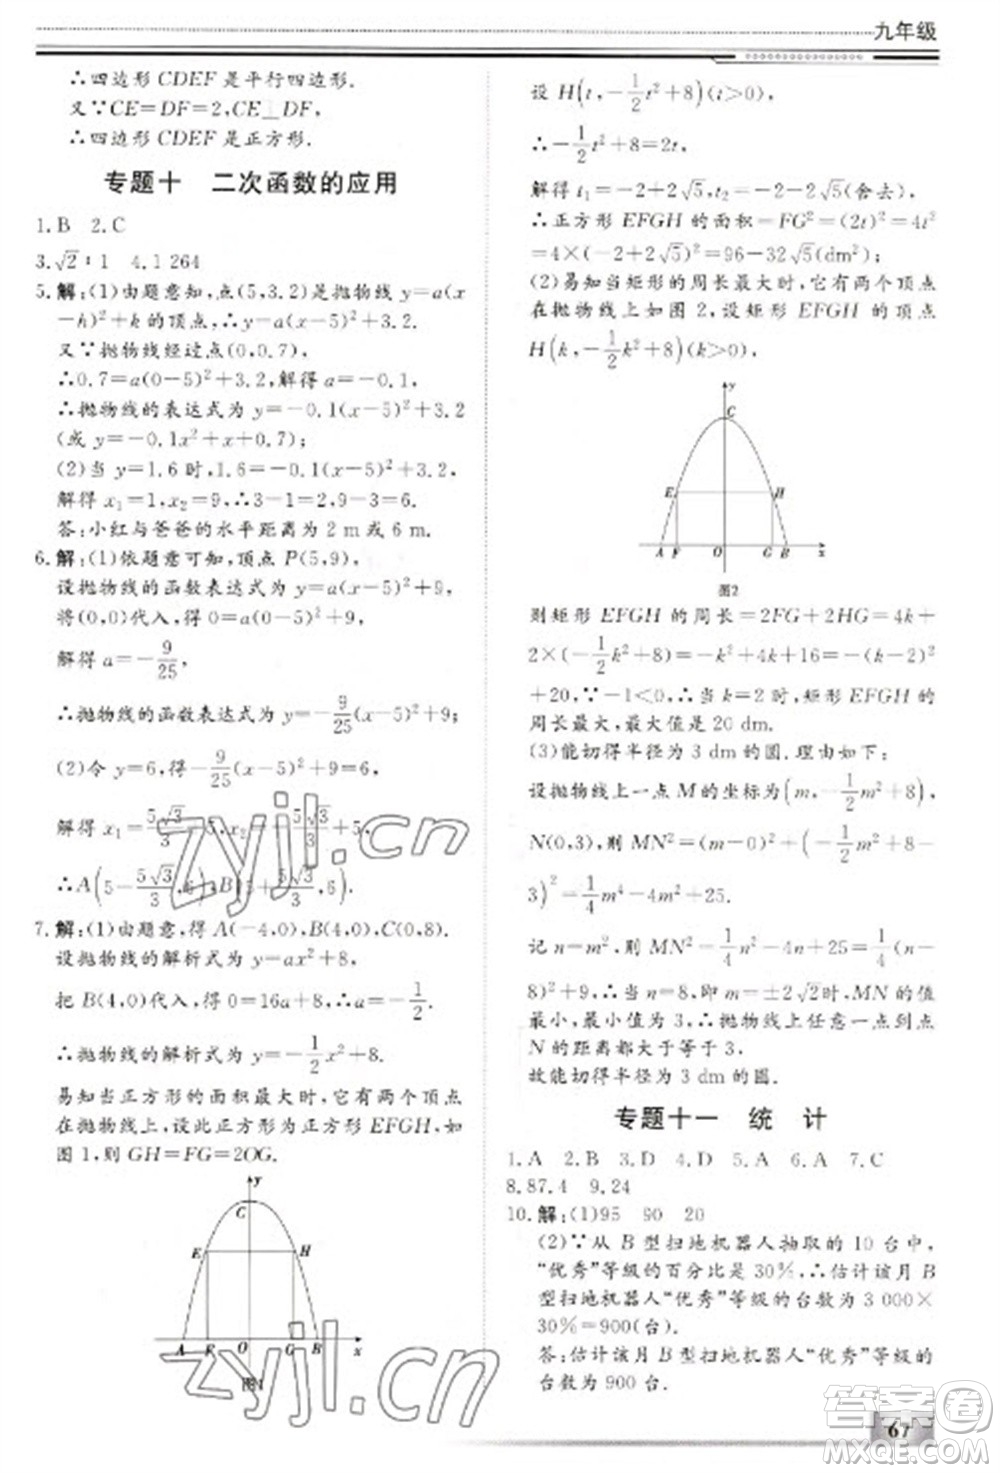 九年级
∴四边形 CDEF 是平行四边形.
又∵CE=DF=2,CE⊥DF,
∴四边形 CDEF 是正方形.
专题十 二次函数的应用
1.B 2.C
3.√2∶1 4.1 264
5.解:(1)由题意知,点(5,3.2)是抛物线 y=a(x
-h)²+k 的顶点,∴y=a(x-5)²+3.2.
又∵抛物线经过点(0,0.7),
∴0.7=a(0-5)²+3.2,解得 a=-0.1,
∴抛物线的表达式为 y=-0.1(x-5)²+3.2
(或 y=-0.1x²+x+0.7);
(2)当 y=1.6 时,1.6=-0.1(x-5)²+3.2,
解得 x₁=1,x₂=9,∴3-1=2,9-3=6.
答:小红与爸爸的水平距离为 2 m或 6 m.
6.解:(1)依题意可知,顶点 P(5,9),
设抛物线的函数表达式为 y=a(x-5)²+9,
将(0,0)代入,得 0=a(0-5)²+9,
解得 a=-9/25,
∴抛物线的函数表达式为 y=-9/25(x-5)²+9;
(2)令 y=6,得-9/25(x-5)²+9=6,
解得 x₁=-5√3/3+5,x₂=5√3/3+5,
∴A(5-5√3/3,6),B(5+5√3/3,6).
7.解:(1)由题意,得 A(-4,0),B(4,0),C(0,8).
设抛物线的解析式为 y=ax²+8,
把 B(4,0)代入,得 0=16a+8,∴a=-1/2.
∴抛物线的解析式为 y=-1/2x²+8.
易知当正方形的面积最大时,正方形的顶点
在抛物线上,设此正方形为正方形 EFGH,如
图 1,则 GH=FG=2OG.
y
C
E H
A F O G B x
图1
设 H(t,-1/2t²+8)(t>0),
∴-1/2t²+8=2t,
解得 t₁=-2+2√5,t₂=-2-2√5(舍去).
∴正方形 EFGH 的面积=FG²=(2t)²=4t²=
4×(-2+2√5)²=96-32√5(dm²)
(2)易知当矩形的周长最大时,矩形的顶点
在抛物线上如图 2,设矩形 EFGH 的顶点
H(k,-1/2k²+8)(k>0),
y
C
E H
A F O G B x
图2
则矩形 EFGH 的周长=2FG+2HG=4k+
2×(-1/2k²+8)=-k²+4k+16=-(k-2)²
+20,∵-1<0,∴当 k=2 时,矩形 EFGH 的
周长最大,最大值是 20 dm.
(3)能切得半径为 3 dm 的圆.理由如下:
设抛物线上一点 M 的坐标为(m,-1/2m²+8),
N(0,3),则 MN²=(m-0)²+(-1/2m²+8-
3)²=1/4m⁴-4m²+25.
记 n=m²,则 MN²=1/4n²-4n+25=1/4(n-
8)²+9,∴当 n=8,即 m=±2√2时,MN 的值
最小,最小值为 3,∴抛物线上任意一点到点
N 的距离都大于等于 3.
故能切得半径为 3 dm 的圆.
专题十一 统 计
1.A 2.B 3.D 4.D 5.A 6.A 7.C
8.87.4 9.24
10.解:(1)95 90 20
(2)∵从 B 型扫地机器人抽取的 10 台中,
“优秀”等级的百分比是 30%,∴估计该月 B
型扫地机器人“优秀”等级的台数为 3 000×
30%=900(台).
答:估计该月 B 型扫地机器人“优秀”等级的
台数为 900 台.
67
zyjl.cn
答案圈
MXQE.COM